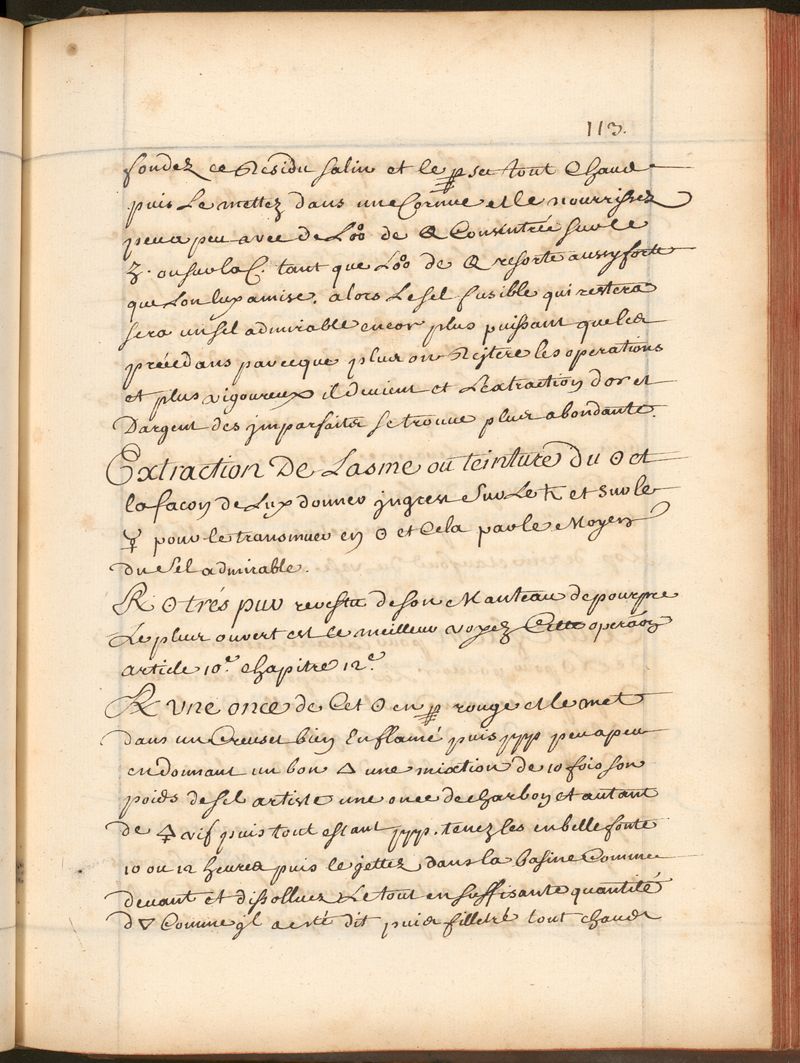 113.
fondez ce Residu salin et le tout Chaud
puis Le mettez dans une Cornue et le nourrissez
peu a peu avec de L'o°o de Consentrée sur le
ou sur la C. tant que L'o°o de resorte aussy forte
que Lon luy a mise. alors Le sel fusible qui restera
sera un sel admirable encor plus puissant que les
précedans parceque plus on Rejtere les operations
et plus vigoureux il devient et L'extraction d'or et
D'argent des jmparfaits se trouve plus abondante.
Extraction De Lasme ou teinture du ☉ et
la facon de Luy donner jngres Sur Le ♄ et sur le
☿ pour le transmuer en ☉ et Cela par le Moyen
du sel admirable.
R ☉ trés pur revestu de son Manteau de pourpre
Le plus ouvert est le meilleur voyez Cette operaõn
article 10.e chapitre 12.e
R Une once de Cet ☉ en rouge et le met
dans un Creuset bien Enflamé puis ppp peu a peu
en donnant un bon △ une mixtion de 10 fois son
poids de sel artiste une once de charbon et autant
de 🜍 vif puis tout estant ppp. tenez les en belle fonte
10 ou 12 heures puis le jettez dans la basine Comme
devant et dissolluez Le tout en suffisante quantité
d ▽ Comme jl a esté dit puis filletré tout chaud